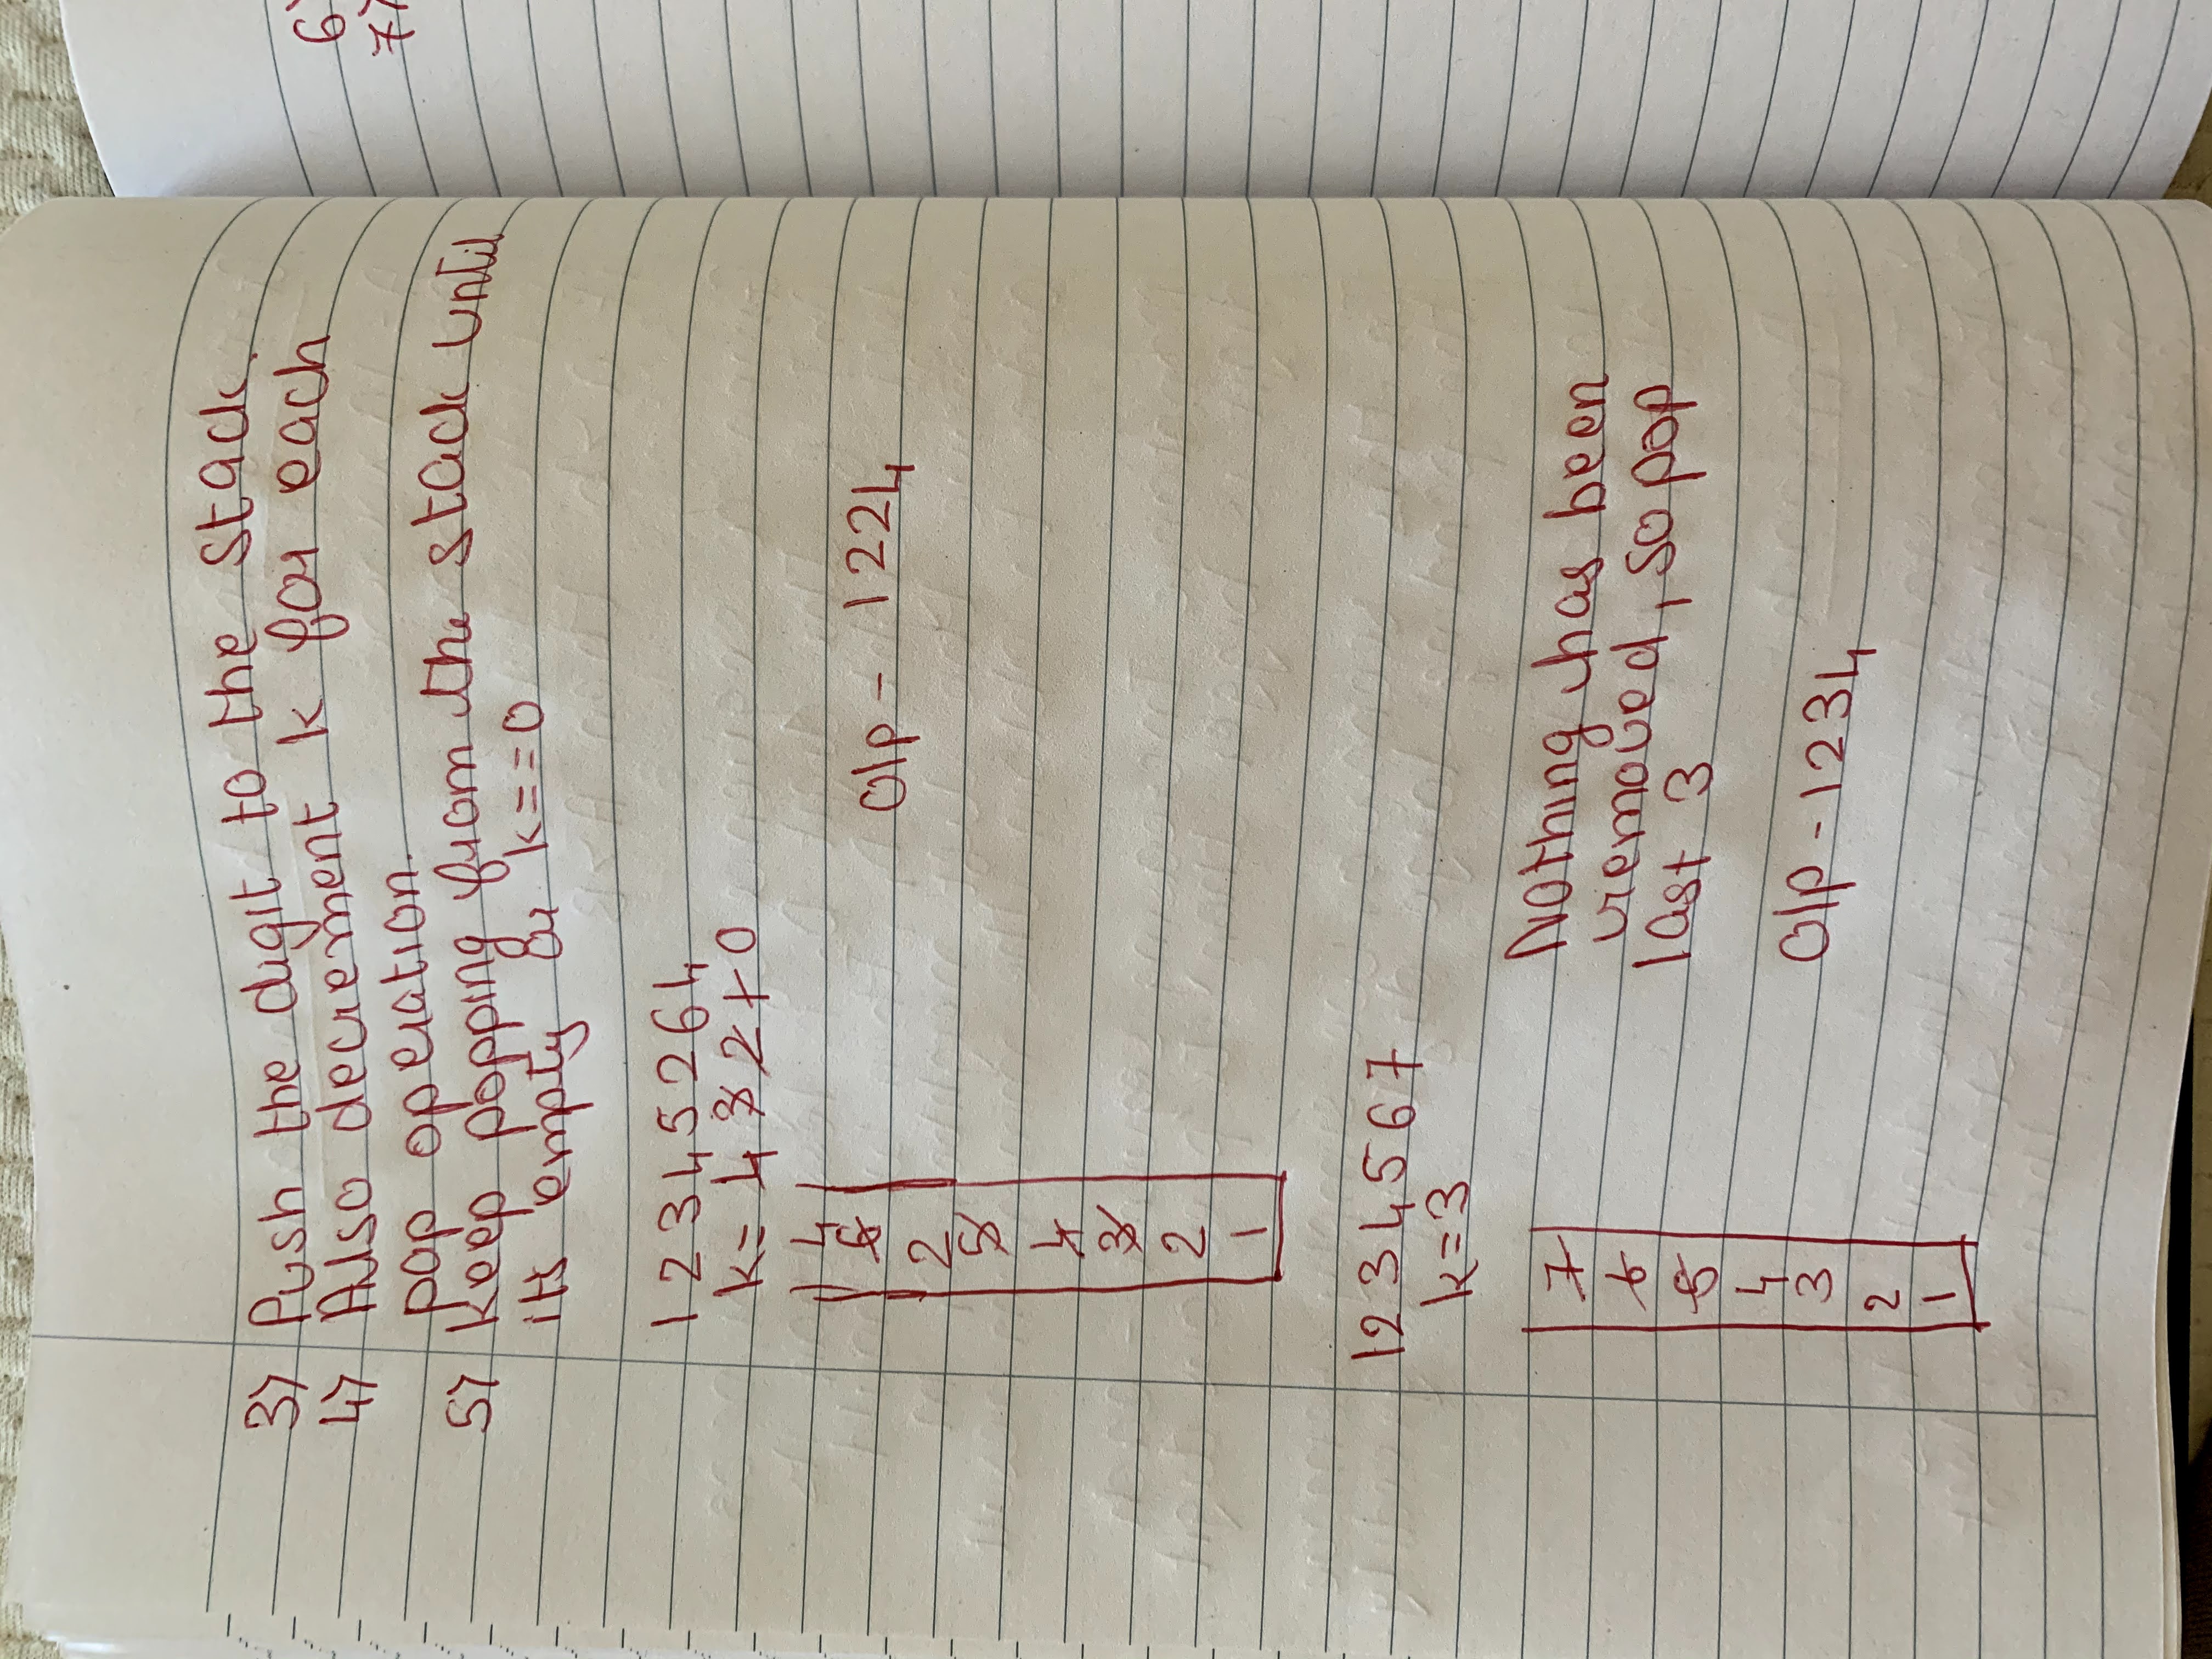 3) Push the digit to the stack.
4) Also decrement k for each
pop operation.
5) keep popping from the stack until
it's empty or k==0
1 2 3 4 5 2 6 4
k= 4 3 2 1 0
4
6
2
5
4
3
2
1
O/p - 1224
1 2 3 4 5 6 7
k=3
7
6
5
4
3
2
1
Nothing has been
removed, so pop
last 3
O/p - 1234
6)
7)